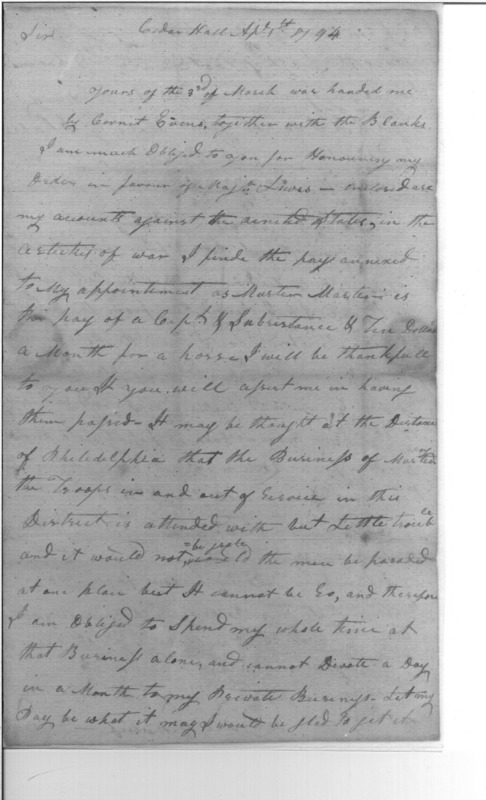 Sir Cedar Hall Apl. 1st 1794
Yours of the 3rd of March was handed me
by Cornet Evens, together with the Blanks
I am much Obliged to you for Honouring my
Order in favour of Majr. Lewis – enclosed are
my accounts against the united States, in the
articles of war I finde the pay annexed
to My appointment as Muster Master is
the pay of a Capt. & Subsistance & Ten Dollars
a Month for a horse I will be thankfull
to you If you will assist me in having
them passed – It may be thought at the Distance
of Philedelphia that the Business of Mustering
the Troops in and out of Service in this
District is attended with but Little trouble
and it would not = be great could the men be paraded
at one place but It cannot be So, and therefore
I am Obliged to Spend my whole time at
that Business alone, and cannot Devote a Day
in a Month to my Private Business – Let my
Pay be what it may I would be glad to get it